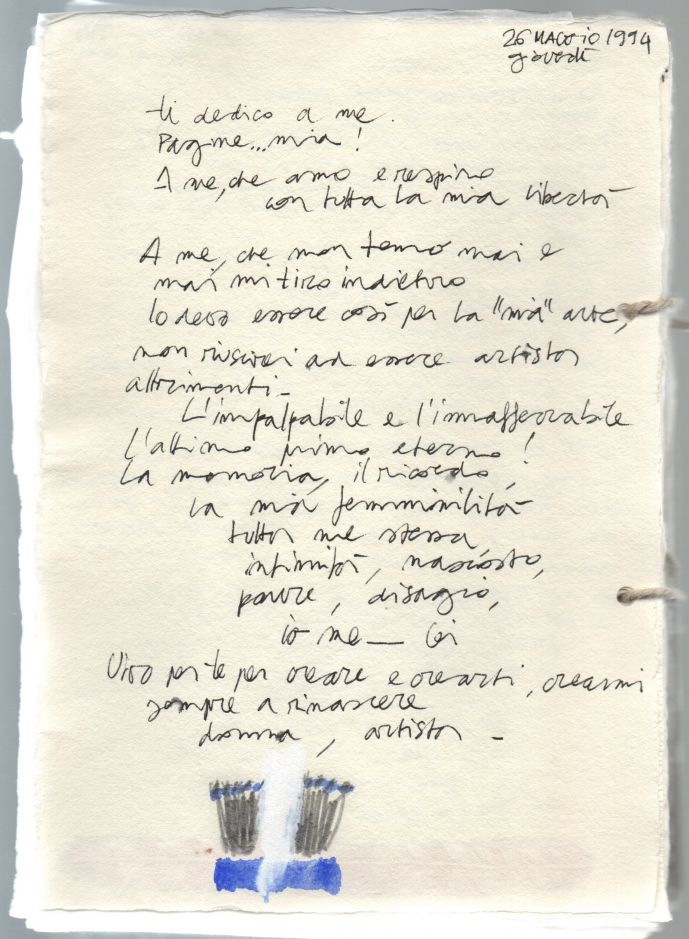 26 MAGGIO 1994
giovedì
ti dedico a me.
Pagine...mia!
A me, che amo e respiro
con tutta la mia libertà
A me, che non temo mai e
mai mi tiro indietro
Io devo essere così per la "mia" arte,
non riuscirei ad essere artista
altrimenti_
L'impalpabile e l'inafferrabile
L'attimo primo eterno!
La memoria, il ricordo,
la mia femminilità
tutta me stessa
intimità, nascosto,
paure, disagio,
io me_ lei
Vivo per te per creare e crearti, crearmi
sempre a rinascere
donna, artista _